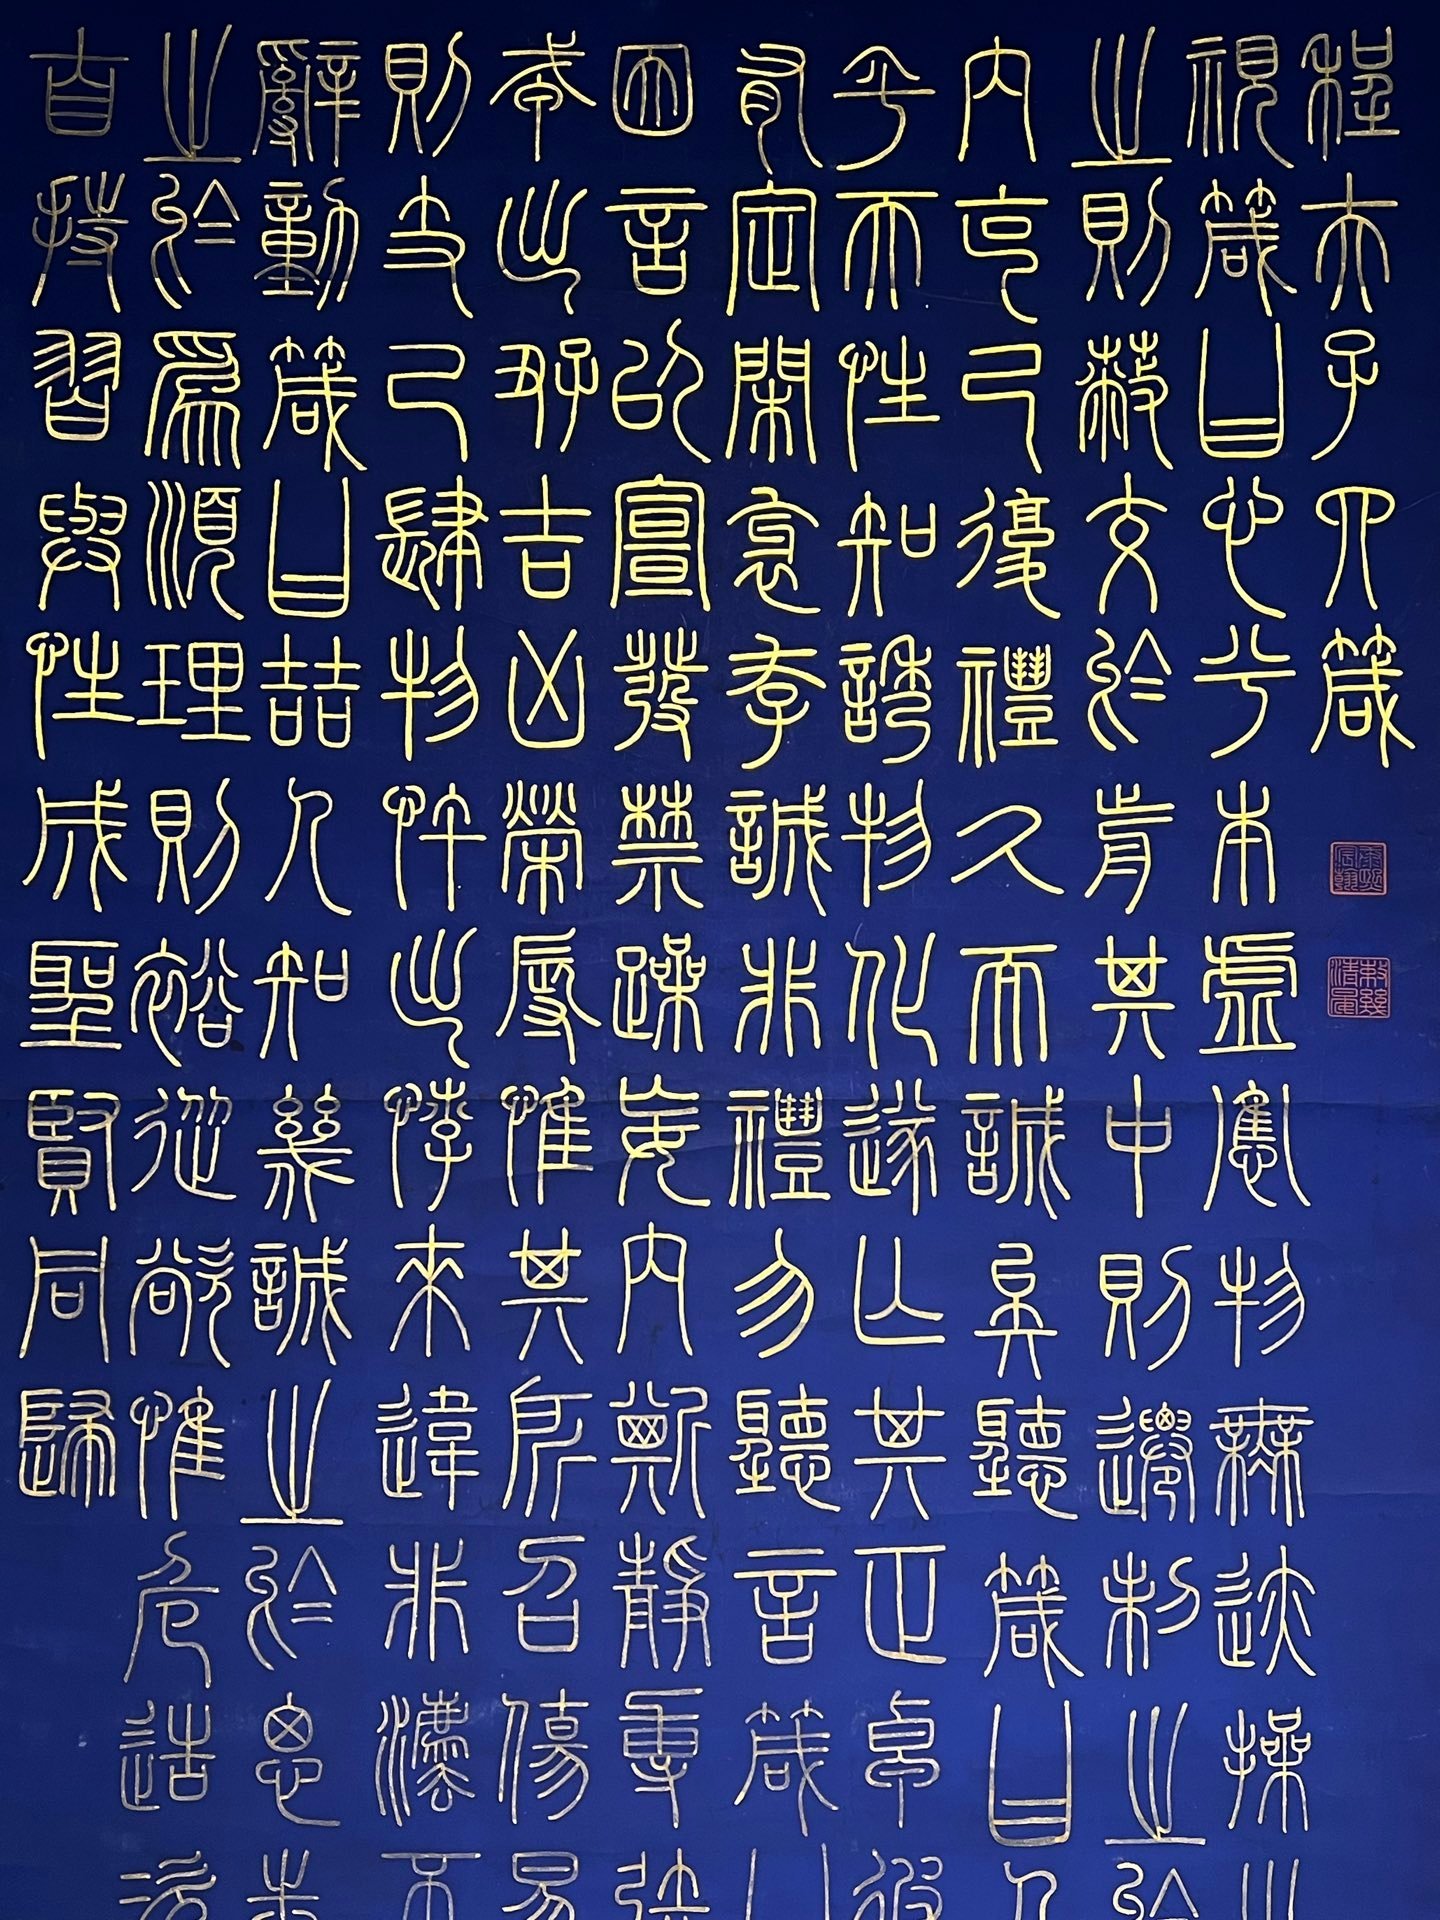 程夫子四箴
視箴曰心兮本虛應物無迹操之
之則蔽交於前其中則遷制之於
內克己復禮久而誠矣聽箴曰人
乎天性知誘物化遂亡其正卓彼
有定閑衺存誠非禮勿聽言箴曰
因言以宣發禁躁妄內斯靜專矧
戎出好吉凶榮辱惟其所召傷易
則支己肆物忤出悖來違非灋不
辭動箴曰喆人知幾誠之於思志
之於爲順理則裕從欲惟危造次
自持習與性成聖賢同歸